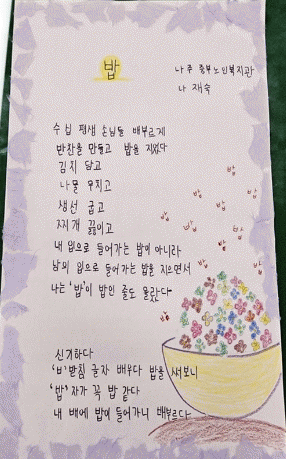 밥
나주 중부노인복지관
나 재숙
수십 평생 손님들 배부르게
반찬을 만들고 밥을 지었다
김치 담고
나물 무치고
생선 굽고
찌개 끓이고
내 입으로 들어가는 밥이 아니라
남의 입으로 들어가는 밥을 지으면서
나는 '밥'이 밥인 줄도 몰랐다
신기하다
'ㅂ'받침 글자 배우다 밥을 써보니
'밥'자가 꼭 밥 같다
내 배에 밥이 들어가니 배부르다
밥
밥
밥
밥
밥
밥
밥
밥
밥
밥